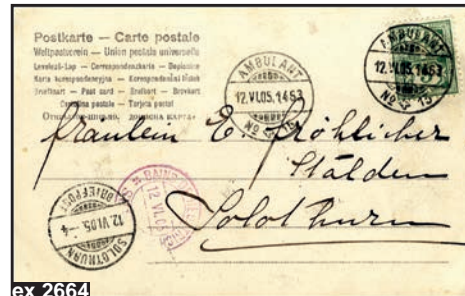 Postkarte — Carte postale
Weltpostverein — Union postale universelle
Levelező-Lap — Correspondenzkarte — Dopisnice
Karta korespondencyjna — Korespondenční lístek
Briefkaart — Post card — Brefkort — Brevkort
Cartolina postale — Tarjeta postal
AMBULANT
12.VI.05.1463
No 15
AMBULANT
12.VI.05.1463
No 15
Fräulein E. Fröhlicher
Stalden
Solothurn
BAINS
12 VI. 05
SOLOTHURN
12.VI.05.-4
BRIEFPOST
ex 2664